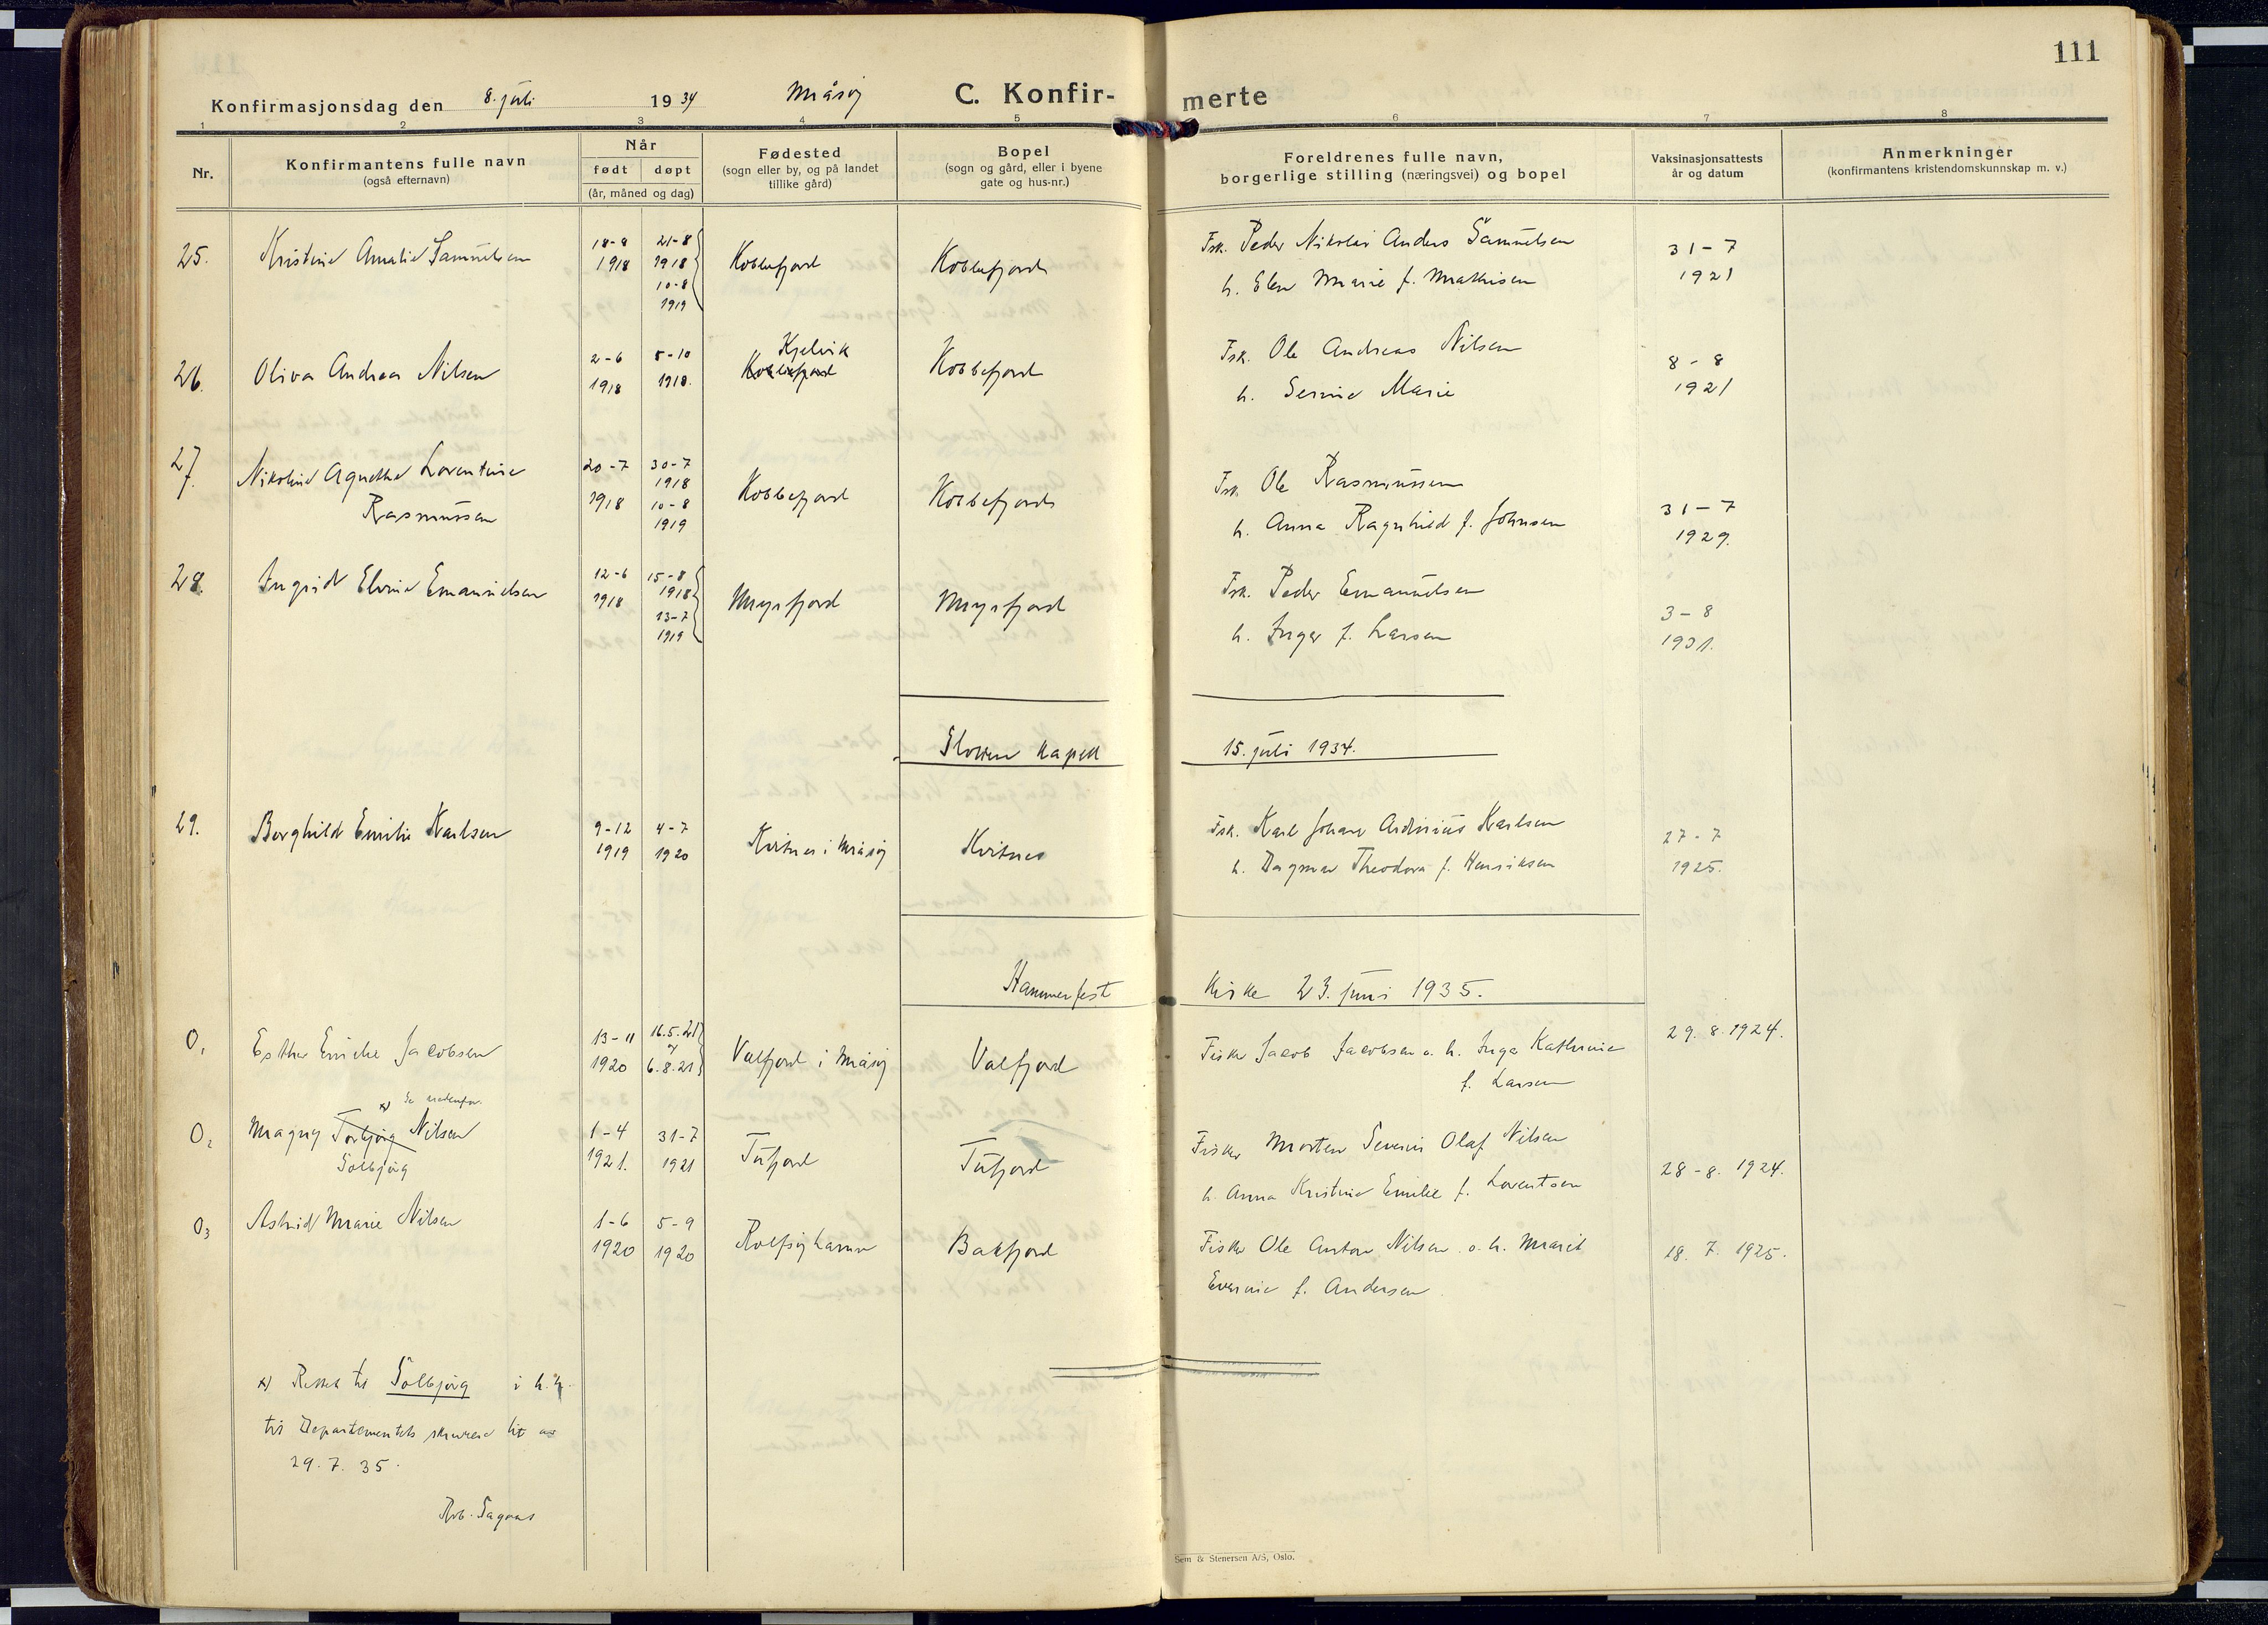 111
Konfirmasjonsdag den 8. juli 1934 Måsøy C. Konfirmerte
1 2 3 4 5 6 7 8
Nr.
Konfirmantens fulle navn
(også efternavn)
Når
født døpt
(år, måned og dag)
Fødested
(sogn eller by, og på landet
tillike gård)
Bopel
(sogn og gård, eller i byene
gate og hus-nr.)
Foreldrenes fulle navn,
borgerlige stilling (næringsvei) og bopel
Vaksinasjonsattests
år og datum
Anmerkninger
(konfirmantens kristendomskunnskap m. v.)
25. Kristine Amalie Samuelsen 18-8 1918 21-8 1918 10-8 1919 Kobbefjord Kobbefjord
Fsk. Peder Nikolai Anders Samuelsen
h. Elen Marie f. Mathisen
31-7 1921
26. Oliva Andrea Nilsen 2-6 1918 5-10 1918. Kjelvik Kobbefjord Kobbefjord
Fsk. Ole Andreas Nilsen
h. Serine Marie
8-8 1921
27. Nikoline Agnethe Lorentine
Rasmussen
20-7 1918 30-7 1918 10-8 1919 Kobbefjord Kobbefjord
Fsk. Ole Rasmussen
h. Anna Ragnhild f. Johnsen
31-7 1929.
28. Ingrid Elvine Emanuelsen 12-6 1918 15-8 1918 13-7 1919 Myrfjord Myrfjord
Fsk. Peder Emanuelsen
h. Inger f. Larsen
3-8 1931.
kapell 15. juli 1934.
29. Borghild Emilie Karlsen 9-12 1919 4-7 1920 Kvitnes i Måsøy Kvitnes
Fsk. Karl Johan Karlsen
h. Dagmar Theodora f. Henriksen
27-7 1925.
Hammerfest Kirke 23. juni 1935.
0, Esther Emilie Jacobsen 13-11 1920 16.5.21 og 6.8.21 Valfjord i Måsøy Valfjord
Fisker Jacob Jacobsen o. h. Inga Kathrine
f. Larsen
29. 8. 1924.
x) Se nedenfor.
0₂ Magny Torbjørg Nilsen
Solbjørg
1-4 1921. 31-7 1921 Tufjord Tufjord
Fisker Morten Severin Olaf Nilsen
h. Anna Kristine Emilie f. Lorentsen
28-8. 1924.
0₃ Astrid Marie Nilsen 1-6 1920 5-9 1920 Rolfsøyhamn Bakfjord
Fisker Ole Anton Nilsen o. h. Marit
f. Andersen
18. 7. 1925.
x) Rettet til Solbjørg i h.h.
til Departementets skrivelse hit av
29. 7. 35.
Sem & Stenersen A/S, Oslo.